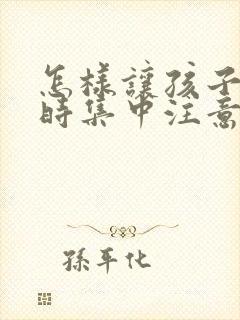 怎樣讓孩子
時集中注意
孫平化